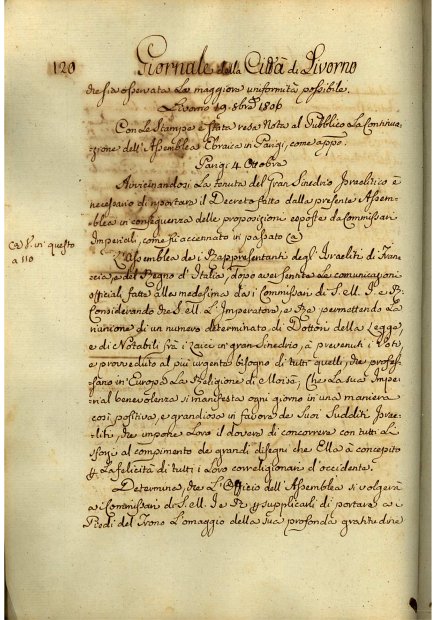 120 Giornale della Città di Livorno
che sia osservata la maggiore uniformità possibile.
Livorno 19. 8bre 1806
Con le Stampe è stata resa Nota al Pubblico la Continua-
zione dell'Assemblea Ebraica in Parigi, come app.o
Parigi 4. Ottobre
Avvicinandosi la tenuta del Gran Sinedrio Israelitico è
necessario di riportare il Decreto fatto dalla presente Assem-
blea in conseguenza delle proposizioni esposte da Commissari
Imperiali, come fù accennato in passato (a
(a V. in questo
a 110
L'Assemblea de i Rappresentanti degl'Israeliti di Fran-
cia, e del Regno d'Italia, dopo aver sentite le comunicazioni
officiali fatte alla medesima da i Commissari di S. M. I. e R.
Considerando che S. M. L'Imperatore, e Re permettendo la
riunione di un numero determinato di Dottori della Legge,
e di Notabili frà i Laici in gran Sinedrio, à prevenuti i Voti,
e provveduto al più urgente bisogno di tutti quelli, che profes-
sano in Europa la Religione di Moisè; Che la sua Impe-
rial benevolenza si manifesta ogni giorno in una maniera
così positiva, e grandiosa in favore de Suoi Sudditi Israe-
liti, che impone Loro il dovere di concorrere con tutti li
sforzi al compimento de grandi disegni che Ella à concepito
p la felicità di tutti i Loro correligionari d'occidente.
Determina, che L'Officio dell'Assemblea si volgerà
a i Commissari di S. M. I. e R. p supplicarli di portare a i
Piedi del Trono l'omaggio della sua profonda gratitudine